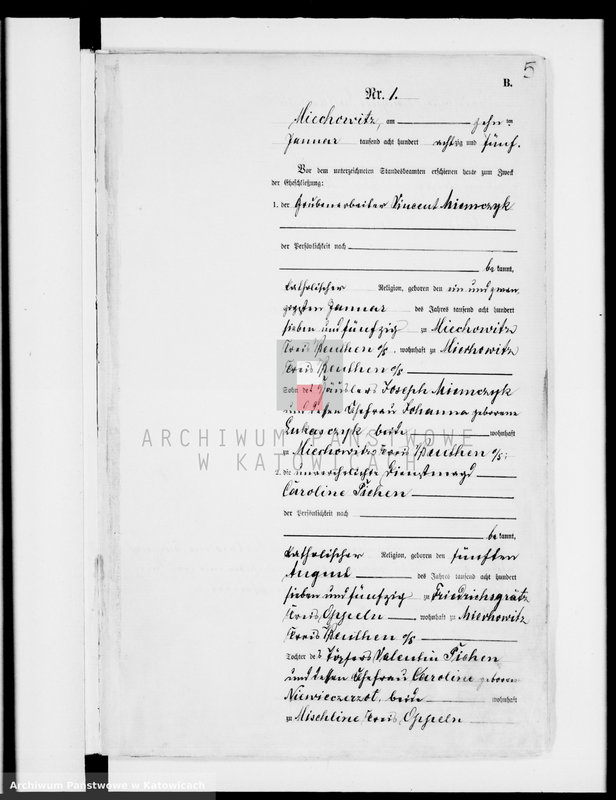 5
B.
Nr. 1.
Miechowitz, am zehnten
Januar tausend acht hundert achtzig und fünf.
Vor dem unterzeichneten Standesbeamten erschienen heute zum Zweck
der Eheschließung:
1. der Grubenarbeiter Vincent Niemczyk
der Persönlichkeit nach
be kannt,
katholischer Religion, geboren den ein und zwan
zigsten Januar des Jahres tausend acht hundert
sieben und fünfzig zu Miechowitz
Kreis Beuthen o/s, wohnhaft zu Miechowitz
Kreis Beuthen o/s
Sohn des Häuslers Joseph Niemczyk
und dessen Ehefrau Johanna geborene
Lukasczyk beide wohnhaft
zu Miechowitz Kreis Beuthen o/s;
2. die unverehelichte Dienstmagd
Caroline
der Persönlichkeit nach
be kannt,
katholischer Religion, geboren den fünften
August des Jahres tausend acht hundert
sieben und fünfzig zu Friedrichsgrätz
Kreis Oppeln, wohnhaft zu Miechowitz
Kreis Beuthen o/s
Tochter des Töpfers Valentin
und dessen Ehefrau Caroline geborene
beide wohnhaft
zu Mischline Kreis Oppeln
ARCHIWUM PAŃSTWOWE
W KATOWICACH
Archiwum Państwowe w Katowicach